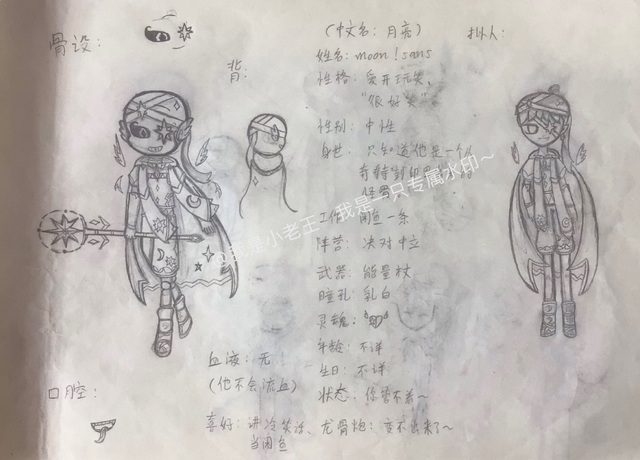 骨设：
背：
(中文名：月亮)
姓名：moon！sans
性格：爱开玩笑、
"很好笑"
性别：中性
身世：只知道他是一个
奇特
怪骨
工作：闲鱼一条
阵营：决对中立
武器：能量杖
瞳孔：乳白
灵魂：
年龄：不详
生日：不详
状态：你管不着~
拟人：
血液：无
(他不会流血)
口腔：
喜好：讲冷笑话、
当闲鱼
龙骨炮：变不出来了~
小老王：我是一只专属水印~